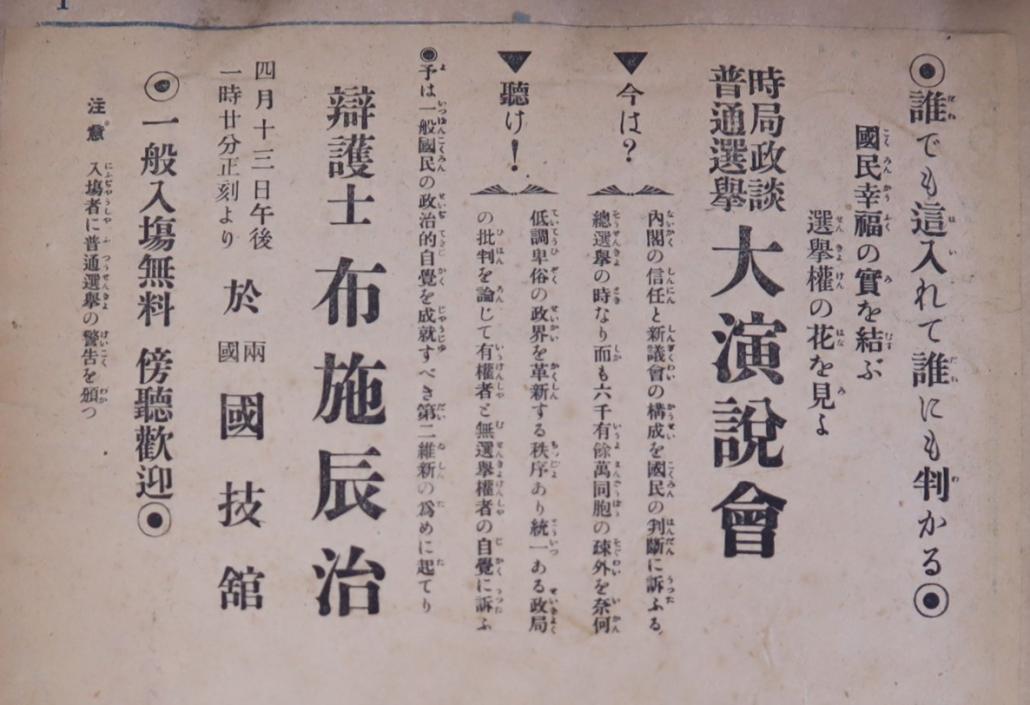 ◉誰でも這入れて誰にも判かる◉
國民幸福の實を結ぶ
選擧權の花を見よ
時局政談
普通選擧
大演說會
▼今は?
內閣の信任と新議會の構成を國民の判斷に訴ふる
總選擧の時なり而も六千有餘萬同胞の疎外を奈何
▼聽け!
低調卑俗の政界を革新する秩序あり統一ある政局
の批判を論じて有權者と無選擧權者の自覺に訴ふ
◉予は一般國民の政治的自覺を成就すべき第二維新の爲めに起てり
辯護士 布施辰治
四月十三日午後
一時廿分正刻より
於 兩國 國技館
◉一般入塲無料 傍聽歡迎◉
注意 入塲者に普通選擧の警告を頒つ